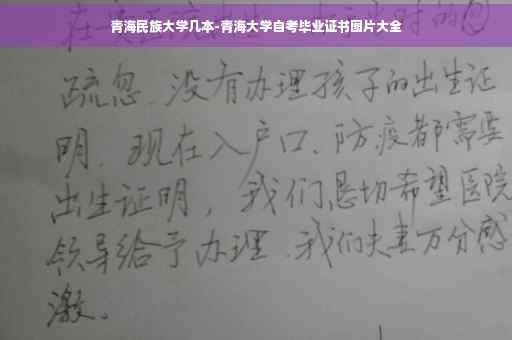 青海民族大学几本-青海大学自考毕业证书图片大全
疏忽、没有办理孩子的出生证
明、现在入户口、防疫都需要
出生证明，我们恳切希望医院
领导给予办理、我们夫妻万分感
激。